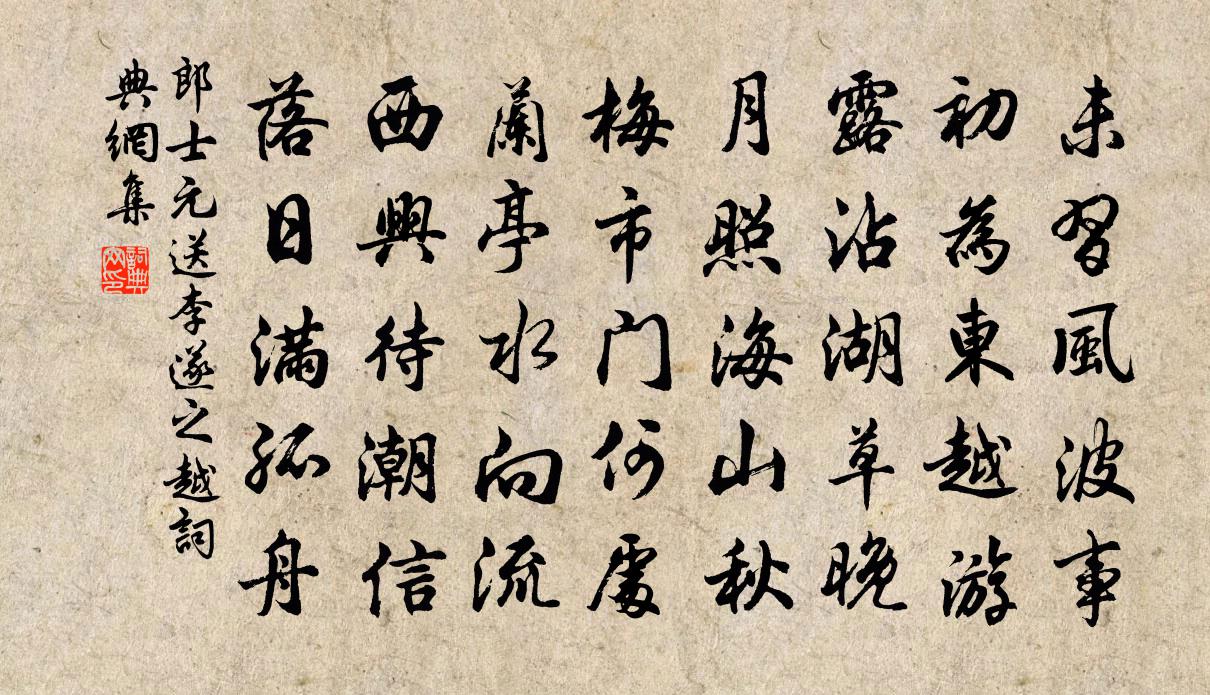 未習風波事
初為東越游
露沾湖草晚
月照海山秋
梅市門何處
蘭亭水向流
西興待潮信
落日滿孤舟
郎士元送李遂之越詞
典網集
詞典